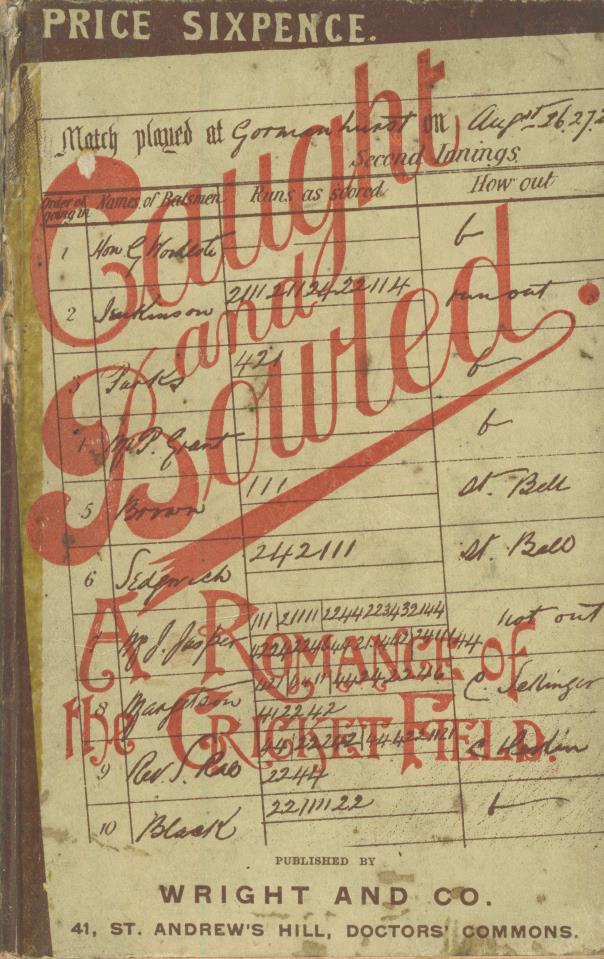 PRICE SIXPENCE.
Caught and Bowled.
A Romance of the Cricket Field.
Match played at Gormanhurst on Augst 26.27.
Second Innings.
Order of going in Names of Batsmen Runs as scored How out
1 Hon G b
2 Jenkinson 2111 2111 24 22 114 run out
3 Parks 421 b
4 Mr P. Grant b
5 Brown 111 st. Bell
6 Sedgwick 242111 st. Bell
7 Mr J. Jasper not out
8 Margetson C. Sellinger
412242
9 Rev S. C
2244
10 Black 22111122 b
PUBLISHED BY
WRIGHT AND CO.
41, ST. ANDREW'S HILL, DOCTORS' COMMONS.